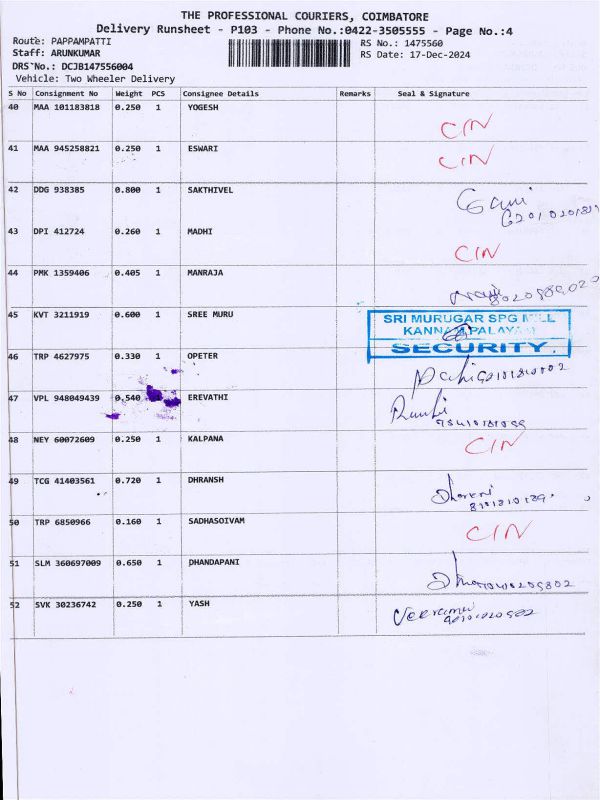 THE PROFESSIONAL COURIERS, COIMBATORE
Delivery Runsheet - P103 - Phone No.:0422-3505555 - Page No.:4
Route: PAPPAMPATTI
RS No.: 1475560
Staff: ARUNKUMAR
RS Date: 17-Dec-2024
DRS No.: DCJB147556004
Vehicle: Two Wheeler Delivery
S No Consignment No Weight PCS Consignee Details Remarks Seal & Signature
40 MAA 101183818 0.250 1 YOGESH CIN
41 MAA 945258821 0.250 1 ESWARI CIN
42 DDG 938385 0.800 1 SAKTHIVEL
43 DPI 412724 0.260 1 MADHI CIN
44 PMK 1359406 0.405 1 MANRAJA
45 KVT 3211919 0.600 1 SREE MURU
SRI MURUGAR SPG MILL
KANNAMPALAYAM
SECURITY.
46 TRP 4627975 0.330 1 OPETER
47 VPL 948049439 0.540 EREVATHI
48 NEY 60072609 0.250 1 KALPANA CIN
49 TCG 41403561 0.720 1 DHRANSH
50 TRP 6850966 0.160 1 SADHASOIVAM CIN
51 SLM 360697009 0.650 1 DHANDAPANI
52 SVK 30236742 0.250 1 YASH